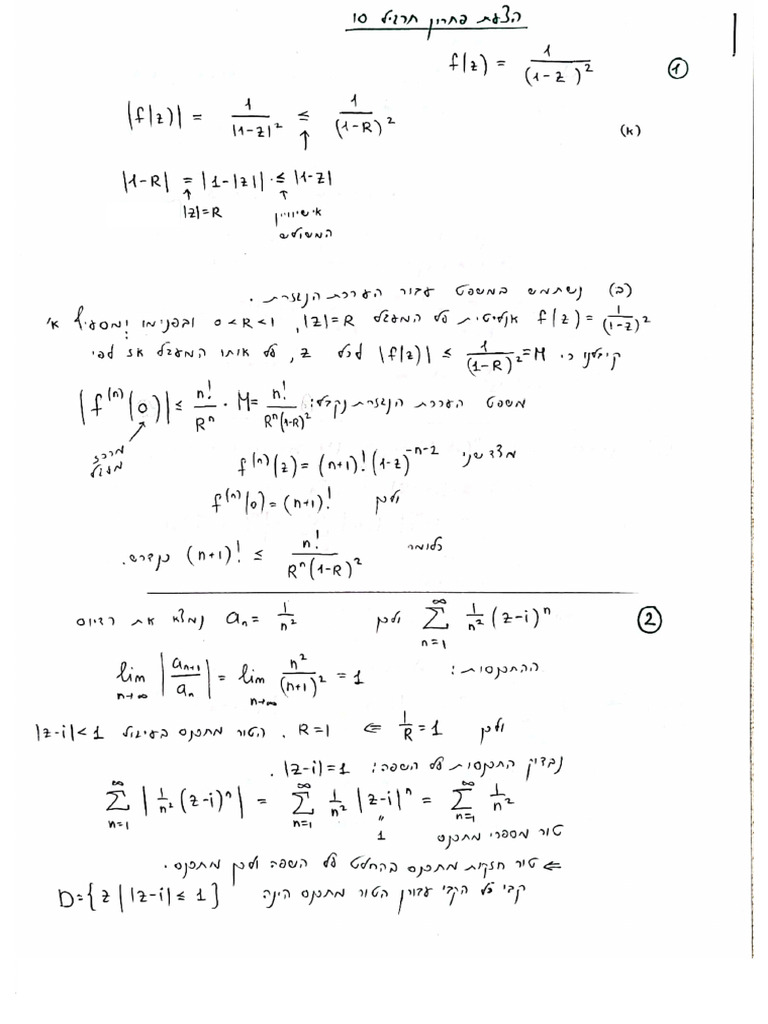 הצעת פתרון תרגיל 10
① f(z) = 1/(1-z)²
(א) |f(z)| = 1/|1-z|² ≤ 1/(1-R)²
↑
|1-R| = |1-|z|| ≤ |1-z|
↑ ↑
|z|=R אי שוויון
המשולש
(ב) נשתמש במשפט עבור הערכת הנגזרת.
f(z) = 1/(1-z)² אנליטית על המעגל |z|=R, 0<R<1 ובפנימו ומסעיף א'
קיבלנו כי |f(z)| ≤ 1/(1-R)² = M לכל z, על אותו המעגל אז לפי
משפט הערכת הנגזרת נקבל: |f⁽ⁿ⁾(0)| ≤ n!/Rⁿ · M = n!/(Rⁿ(1-R)²)
מרכז
מעגל
מצד שני f⁽ⁿ⁾(z) = (n+1)! (1-z)⁻ⁿ⁻²
ולכן f⁽ⁿ⁾(0) = (n+1)!
כלומר (n+1)! ≤ n!/(Rⁿ(1-R)²) כנדרש.
② ∑_{n=1}^{∞} 1/n² (z-i)ⁿ ולכן aₙ = 1/n² נמצא את רדיוס
ההתכנסות: lim_{n→∞} |aₙ₊₁/aₙ| = lim_{n→∞} n²/(n+1)² = 1
ולכן 1/R = 1 ⇐ R=1. הטור מתכנס בעיגול |z-i|<1
נבדוק התכנסות על השפה: |z-i|=1.
∑_{n=1}^{∞} |1/n² (z-i)ⁿ| = ∑_{n=1}^{∞} 1/n² |z-i|ⁿ = ∑_{n=1}^{∞} 1/n²
"
1
טור מספרי מתכנס
⇐ טור חזקות מתכנס בהחלט על השפה ולכן מתכנס.
קב' כל הקוד' עבורן הטור מתכנס הינה D={z | |z-i| ≤ 1}